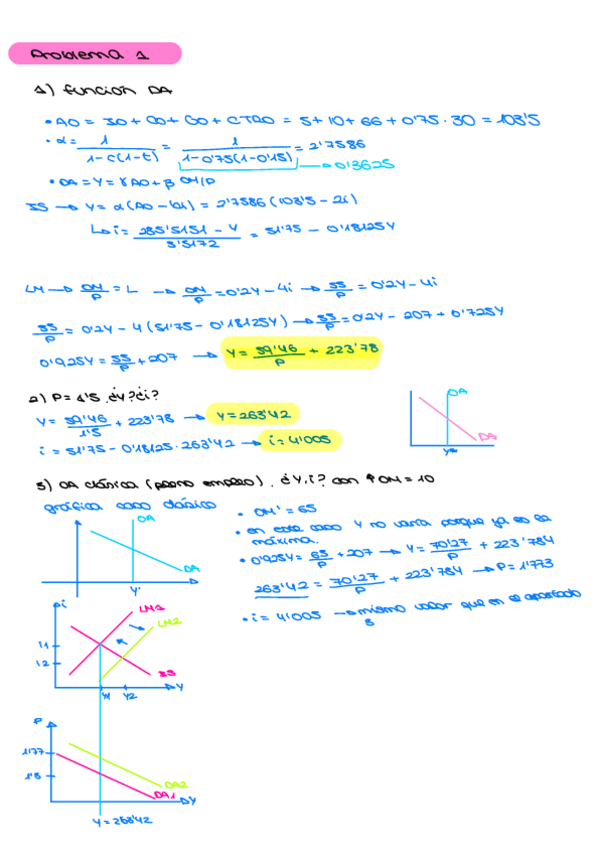 Problema 1
1) función DA
• AO = IO + CO + GO + CTRO = 5 + 10 + 66 + 0'75 · 30 = 103'5
• α = 1 / 1-c(1-t) = 1 / 1-0'75(1-0'15) = 2'7586
0'3625
• DA = Y = γAO + β OM/P
IS → Y = α(AO - bi) = 2'7586 (103'5 - 2i)
↳ i = 285'5151 - Y / 5'5172 = 51'75 - 0'18125Y
LM → OM/P = L → OM/P = 0'2Y - 4i → 55/P = 0'2Y - 4i
55/P = 0'2Y - 4(51'75 - 0'18125Y) → 55/P = 0'2Y - 207 + 0'725Y
0'925Y = 55/P + 207 → Y = 59'46/P + 223'78
2) P = 1'5 ¿Y? ¿i?
Y = 59'46/1'5 + 223'78 → Y = 263'42
i = 51'75 - 0'18125 · 263'42 → i = 4'005
OA
DA
Y*
3) OA clásica (pleno empleo). ¿Y, i? con ↑OM = 10
gráfica caso clásico
OA
DA
Y'
• OM' = 65
• en este caso Y no varía porque ya es la
máxima.
• 0'925Y = 65/P + 207 → Y = 70'27/P + 223'784
263'42 = 70'27/P + 223'784 → P = 1'773
• i = 4'005 → mismo valor que en el apartado
i
LM1
LM2
i1
i2
IS
Y1 Y2
Y
P
1'77
1'5
DA2
DA1
Y
Y = 263'42